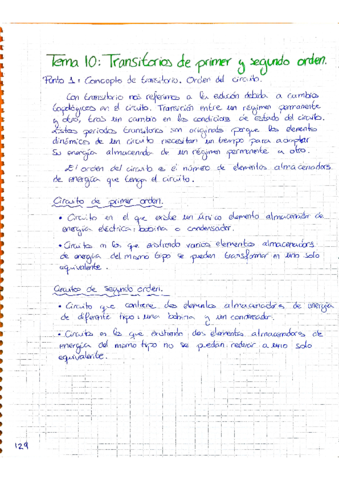 Tema 10: Transitorios de primer y segundo orden.
Punto 1: Concepto de transitorio. Orden del circuito.
Con transitorio nos referimos a la evolución debida a cambios
topológicos en el circuito. Transición entre un régimen permanente
y otro, tras un cambio en las condiciones de estado del circuito.
Estos periodos transitorios son originados porque los elementos
dinámicos de un circuito necesitan un tiempo para adaptar
su energía almacenada de un régimen permanente a otro.
El orden del circuito es el número de elementos almacenadores
de energía que tenga el circuito.
Circuito de primer orden.
• Circuito en el que existe un único elemento almacenador de
energía eléctrica: bobina o condensador.
• Circuitos en los que existiendo varios elementos almacenadores
de energía del mismo tipo se pueden transformar en uno solo
equivalente.
Circuitos de segundo orden.
• Circuito que contiene dos elementos almacenadores de energía
de diferente tipo: una bobina y un condensador.
• Circuitos en los que existiendo dos elementos almacenadores de
energía del mismo tipo no se puedan reducir a uno solo
equivalente.
129